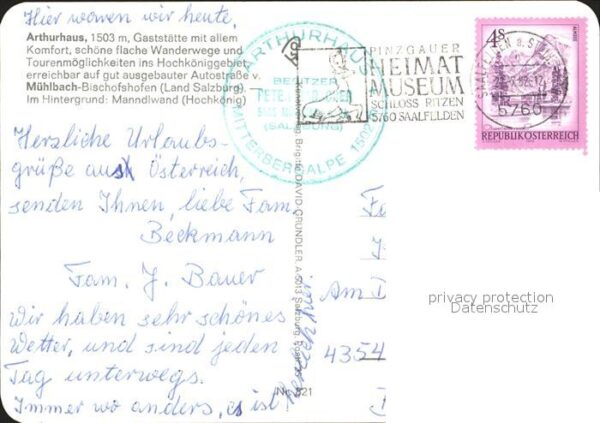 Hier waren wir heute,
Arthurhaus, 1503 m, Gaststätte mit allem
Komfort, schöne flache Wanderwege und
Tourenmöglichkeiten ins Hochköniggebiet,
erreichbar auf gut ausgebauter Autostraße v.
Mühlbach-Bischofshofen (Land Salzburg).
Im Hintergrund: Manndlwand (Hochkönig)
Herzliche Urlaubs-
grüße aus Österreich,
senden Ihnen, liebe Fam.
Beckmann
Fam. J. Bauer
Wir haben sehr schönes
Wetter, und sind jeden
Tag unterwegs.
Immer wo anders, es ist
herrlich hier.
ARTHURHAUS
BESITZER
(SALZBURG)
MITTERBERGALPE 1502
Brigitte DAVID-GRUNDLER, A-5013 Salzburg
PINZGAUER
HEIMAT
MUSEUM
SCHLOSS RITZEN
5760 SAALFELDEN
5760
4S
REPUBLIK ÖSTERREICH
Am
4354
privacy protection
Datenschutz